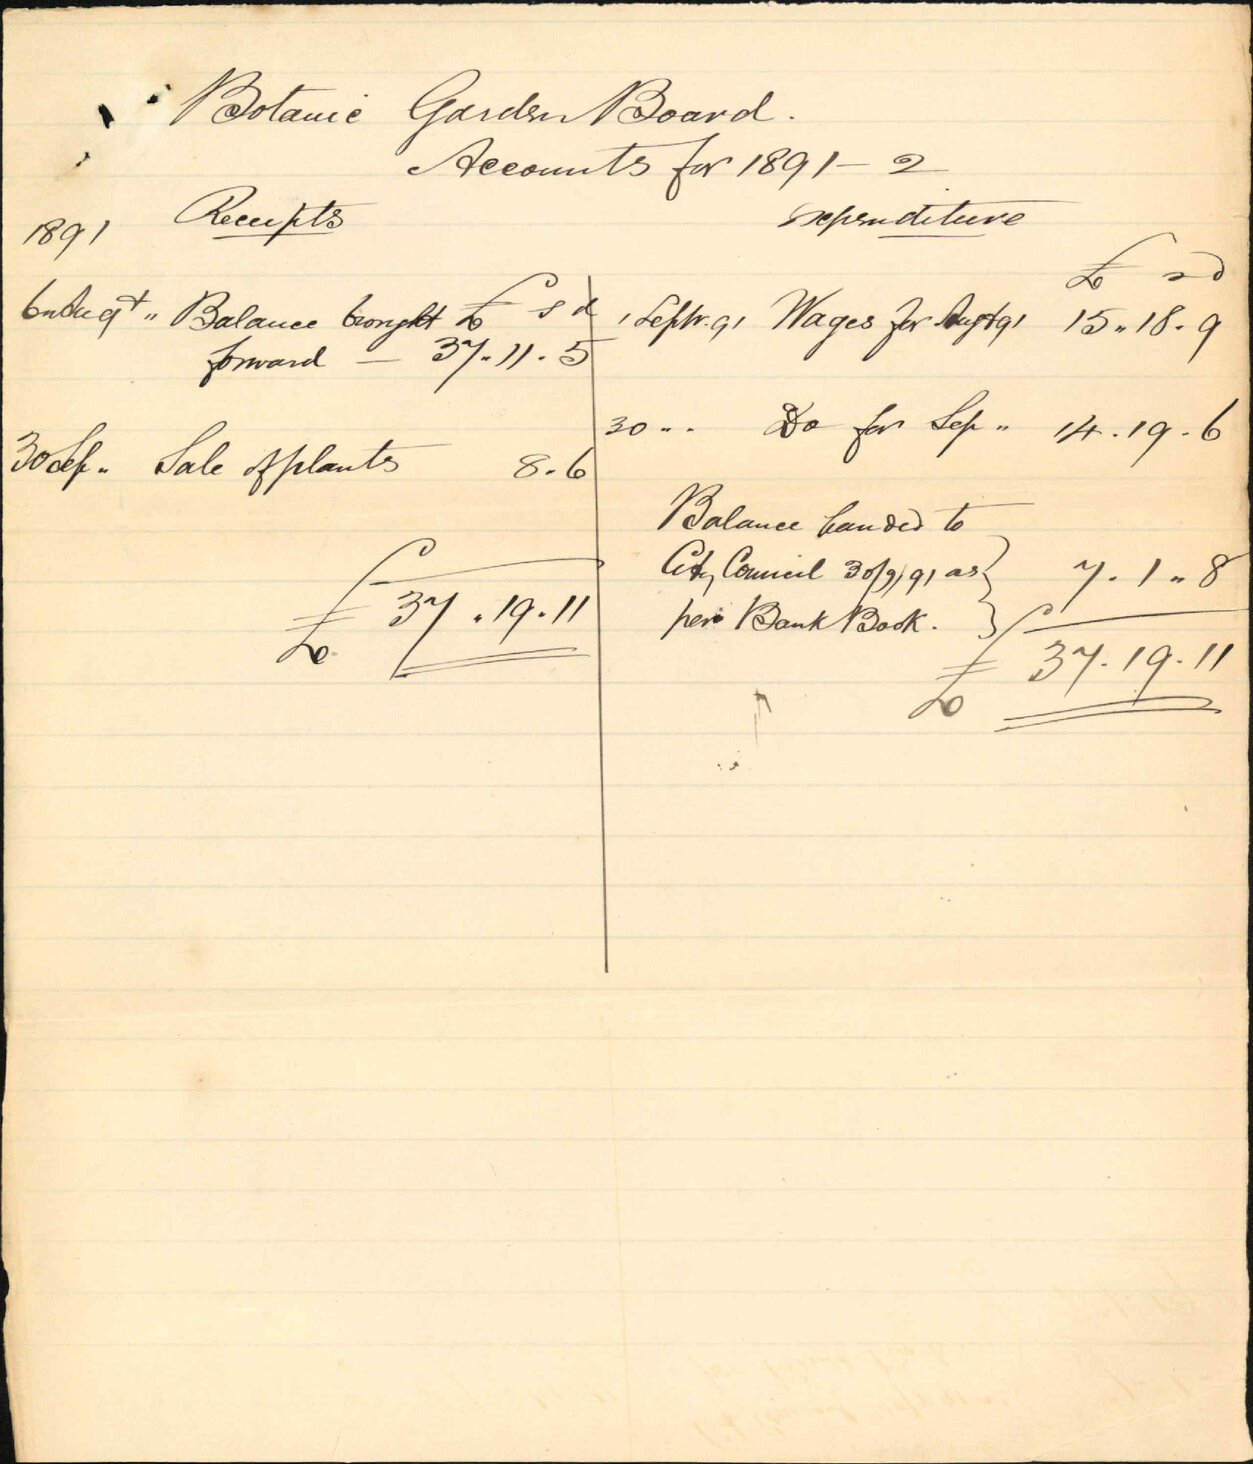 Botanic Garden Board.
Accounts for 1891-2
Receipts
1891
6th Augt " Balance brought £ s d
forward — 37 " 11 . 5
30 Sep " Sale of plants 8 . 6
£ 37 . 19 . 11
Expenditure
£ s d
1 Septr. 91 Wages for Augt 91 15 " 18 . 9
30 " " Do for Sep " 14 . 19 . 6
Balance handed to
City Council 30/9/91 as
per Bank Book. 7 . 1 " 8
£ 37 . 19 . 11